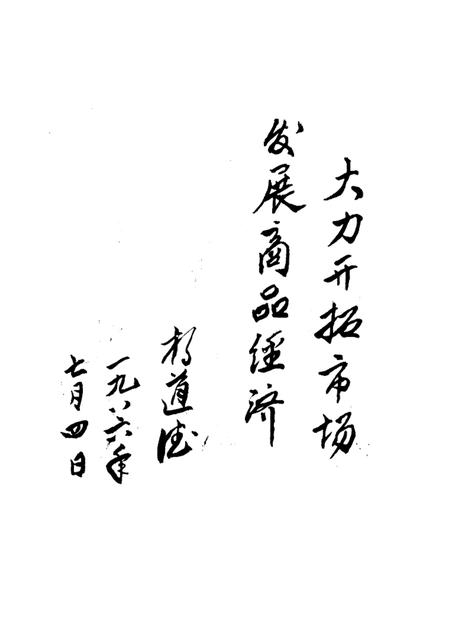 大力开拓市场
发展商品经济
杨道德
一九八六年
七月四日